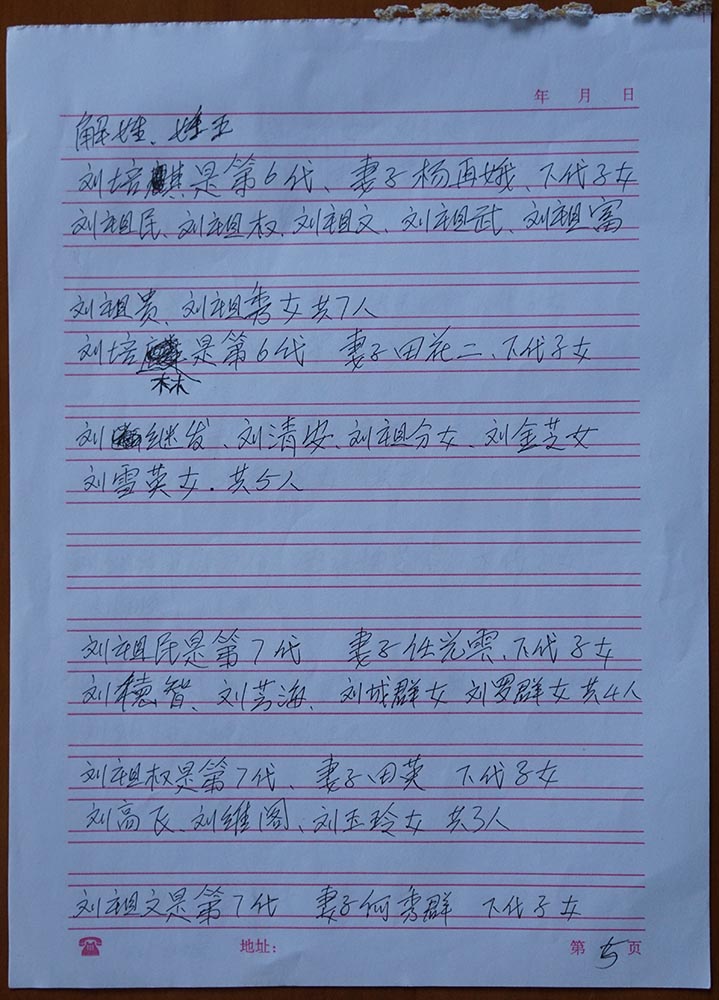 年 月 日
解姓、姓王
刘培麒是第6代、妻子杨再娥、下代子女
刘祖民、刘祖权、刘祖文、刘祖武、刘祖富
刘祖贵、刘祖秀女共7人
刘培林是第6代 妻子田花二、下代子女
刘继发、刘清安、刘祖分女、刘金芝女
刘雪英女.共5人
刘祖民是第7代 妻子任光雲、下代子女
刘德智、刘芸海、刘城群女 刘罗群女共4人
刘祖权是第7代、妻子田英 下代子女
刘高飞、刘维阁、刘玉玲女 共3人
刘祖文是第7代 妻子何秀群 下代子女
地址: 第5页